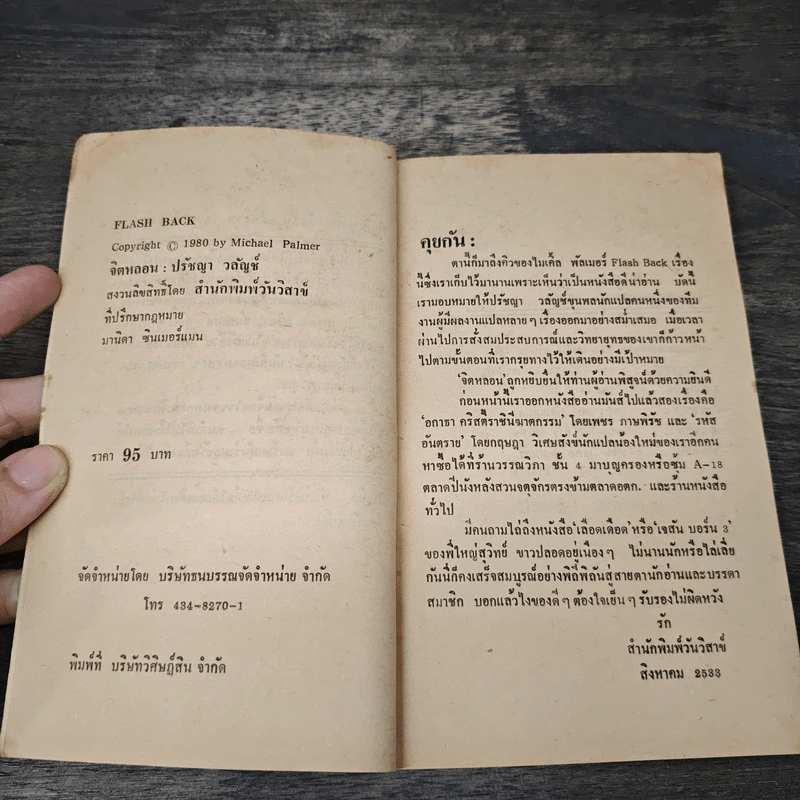 FLASH BACK
Copyright © 1980 by Michael Palmer
จิตหลอน : ปรัชญา วลัญช์
สงวนลิขสิทธิ์โดย สำนักพิมพ์วันวิสาข์
ที่ปรึกษากฎหมาย
มานิดา ซินเมอร์แมน
ราคา 95 บาท
จัดจำหน่ายโดย บริษัทธนบรรณจัดจำหน่าย จำกัด
โทร 434-8270-1
พิมพ์ที่ บริษัทวิศิษฎ์สิน จำกัด
คุยกัน :
ตานี้ก็มาถึงคิวของไมเคิ้ล พัลเมอร์ Flash Back เรื่อง
นี้ซึ่งเราเก็บไว้มานานเพราะเห็นว่าเป็นหนังสือดีน่าอ่าน บัดนี้
เรามอบหมายให้ปรัชญา วลัญช์ขุนพลนักแปลคนหนึ่งของทีม
งานผู้มีผลงานแปลหลายๆเรื่องออกมาอย่างสม่ำเสมอ เมื่อเวลา
ผ่านไปการสั่งสมประสบการณ์และวิทยายุทธของเขาก็ก้าวหน้า
ไปตามขั้นตอนที่เรากรุยทางไว้ให้เดินอย่างมีเป้าหมาย
'จิตหลอน'ถูกหยิบยื่นให้ท่านผู้อ่านพิสูจน์ด้วยความยินดี
ก่อนหน้านี้เราออกหนังสืออ่านมันส์ไปแล้วสองเรื่องคือ
'อกาธา คริสตี้ราชินีฆาตกรรม' โดยเพชร ภาษพิรัช และ 'รหัส
อันตราย' โดยกฤษฎา วิเศษสังข์นักแปลน้องใหม่ของเราอีกคน
หาซื้อได้ที่ร้านวรรณวิภา ชั้น 4 มาบุญครองหรือซุ้ม A-18
ตลาดปีนังหลังสวนจตุจักรตรงข้ามตลาดอตก. และร้านหนังสือ
ทั่วไป
มีคนถามไถ่ถึงหนังสือ'เลือดเดือด'หรือ'เจสัน บอร์น 3'
ของพี่ใหญ่สุวิทย์ ขาวปลอดอยู่เนืองๆ ไม่นานนักหรือไล่เลี่ย
กันนี้ก็คงเสร็จสมบูรณ์อย่างพิถีพิถันสู่สายตานักอ่านและบรรดา
สมาชิก บอกแล้วไงของดีๆต้องใจเย็นๆรับรองไม่ผิดหวัง
รัก
สำนักพิมพ์วันวิสาข์
สิงหาคม 2533